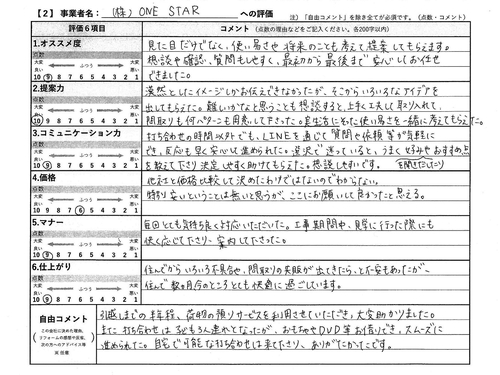 【2】事業者名： (株) ONE STAR への評価 注)「自由コメント」を除き全てが必須です。(点数・コメント)
評価6項目 コメント (点数の理由などをご記入ください。各200字以内)
1.オススメ度
点数
大変良い ふつう 大変悪い
10 9 8 7 6 5 4 3 2 1
見た目だけでなく、使い易さや将来のことも考えて提案してもらえます。
相談や確認、質問もしやすく、最初から最後まで安心してお任せ
できました。
2.提案力
点数
大変良い ふつう 大変悪い
10 9 8 7 6 5 4 3 2 1
漠然としたイメージしかお伝えできなかったが、そこからいろいろなアイデアを
出してもらえた。難しいかなと思うことも相談すると、上手く工夫して取り入れて、
間取りも何パターンも用意して下さった。実生活にそった使い易さを一緒に考えてもらえた。
3.コミュニケーション力
点数
大変良い ふつう 大変悪い
10 9 8 7 6 5 4 3 2 1
打ち合わせの時間以外でも、LINEを通じて質問や依頼等が気軽に
でき、反応も早く安心して進められた。選択で迷っていると、うまく好みやおすすめ点
を聞きだしたり
を教えて下さり決定しやすく助けてもらえた。相談しやすいです。
4.価格
点数
大変良い ふつう 大変悪い
10 9 8 7 6 5 4 3 2 1
他社と価格比較して決めたわけではないのでわからない。
特別安いということは無いと思うが、ここにお願いして良かったと思える。
5.マナー
点数
大変良い ふつう 大変悪い
10 9 8 7 6 5 4 3 2 1
毎回とても気持ち良く対応いただいた。工事期間中、見学に行った際にも
快く応じて下さり、案内して下さった。
6.仕上がり
点数
大変良い ふつう 大変悪い
10 9 8 7 6 5 4 3 2 1
住んでからいろいろ不具合や、間取りの失敗が出てきたら、と不安もあったが、
住んで数ヶ月今のところとても快適に過ごしています。
自由コメント
(この会社に決めた理由、
リフォームの感想や反省、
次の方へのアドバイス等
※任意
引越しまでの半年程、荷物の預りサービスを利用させていただき、大変助かりました。
また打ち合わせは子ども3人連れとなったが、おもちゃやDVD等お借りでき、スムーズに
進められた。自宅で可能な打ち合わせは来て下さり、ありがたかったです。